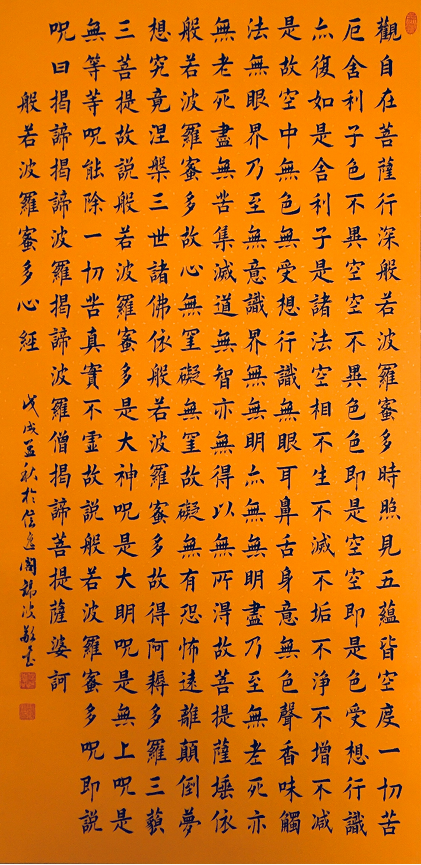 觀自在菩薩行深般若波羅蜜多時照見五蘊皆空度一切苦
厄舍利子色不異空空不異色色即是空空即是色受想行識
亦復如是舍利子是諸法空相不生不滅不垢不淨不增不減
是故空中無色無受想行識無眼耳鼻舌身意無色聲香味觸
法無眼界乃至無意識界無無明亦無無明盡乃至無老死亦
無老死盡無苦集滅道無智亦無得以無所得故菩提薩埵依
般若波羅蜜多故心無罣礙無罣故礙無有恐怖遠離顛倒夢
想究竟涅槃三世諸佛依般若波羅蜜多故得阿耨多羅三藐
三菩提故說般若波羅蜜多是大神呪是大明呪是無上呪是
無等等呪能除一切苦真實不虛故說般若波羅蜜多呪即說
呪曰揭諦揭諦波羅揭諦波羅僧揭諦菩提薩婆訶
般若波羅蜜多心經
戊戌孟秋於